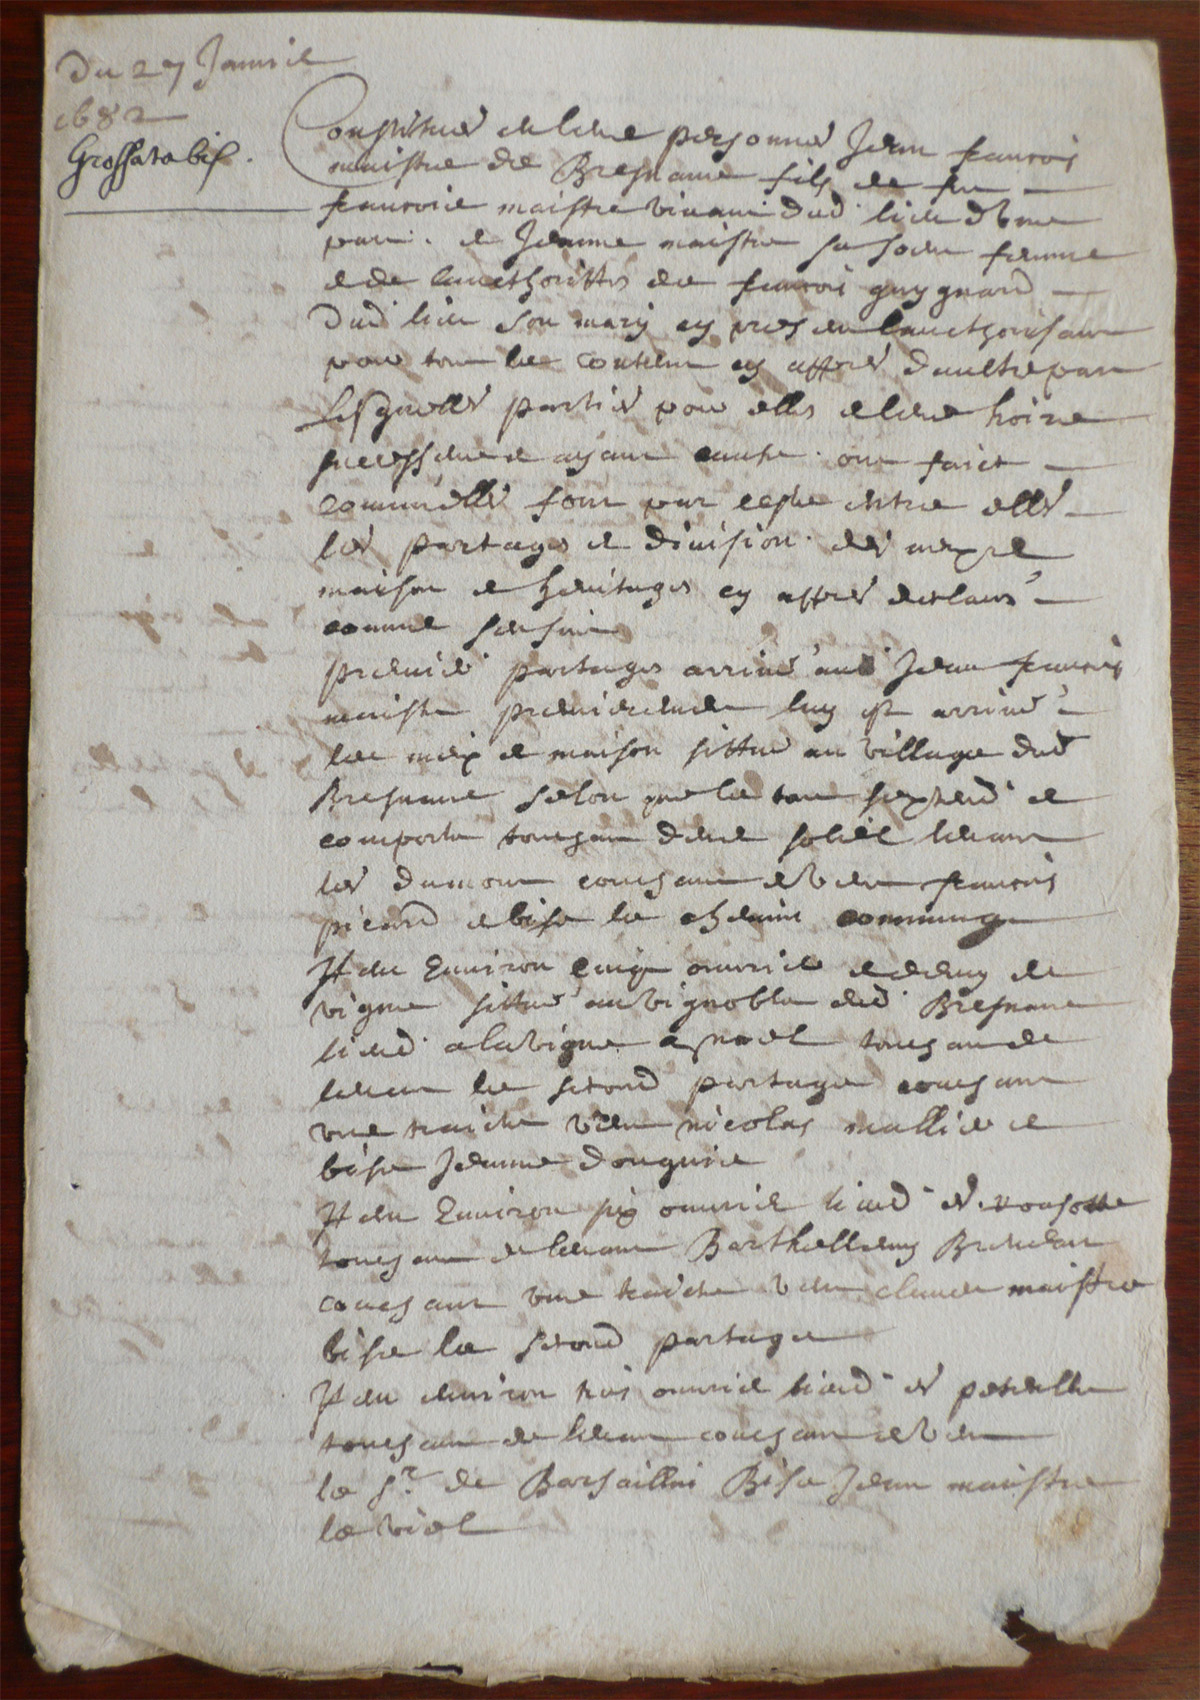 Du 27 Janvie
1682
Grossata bis.
Constituer en leure personne Jean francois
maistre de Bresnanne fils de feu
francoie maistre vivant dud. lieu dune
part. e Jeanne maistre sa soeur femme
e de laucthoritte de francois guygnard
dud lieu son mary cy present laucthorisant
pour tout le contenu cy apprer daultre part
lesquelles partier pour elles e leure hoire
successeure e ayant cause. ont faict
comme elles font par ceste entre eller
les partages e division. des meix e
maison e heritages cy apprer declaré
comme sensuit
premié partages arrivé aud Jean francois
maistre premierement luy est arrivé
le meix e maison sittué au village dud
Bresnanne selon que le tout sextend e
comporte touchant deue soleil levant
les dumont couchant e vent francois
picard e bise le chemin commung
Item Environ cinq ouvrie e demy de
vigne sittué au vignoble dud. Bresnane
lieud. a la vigne a noel touchant de
levant le second partage couchant
une traiche vent nicolas mallie e
bise Jeanne
Item Environ six ouvrie lieud. es
touchant de levant Barthellemy
couchant une traiche vent claude maistre
bise le second partage
Item environ trois ouvrie lieud. es
touchant de levant couchant e vent
le sr. de Barsaillin Bise Jean maistre
le viel